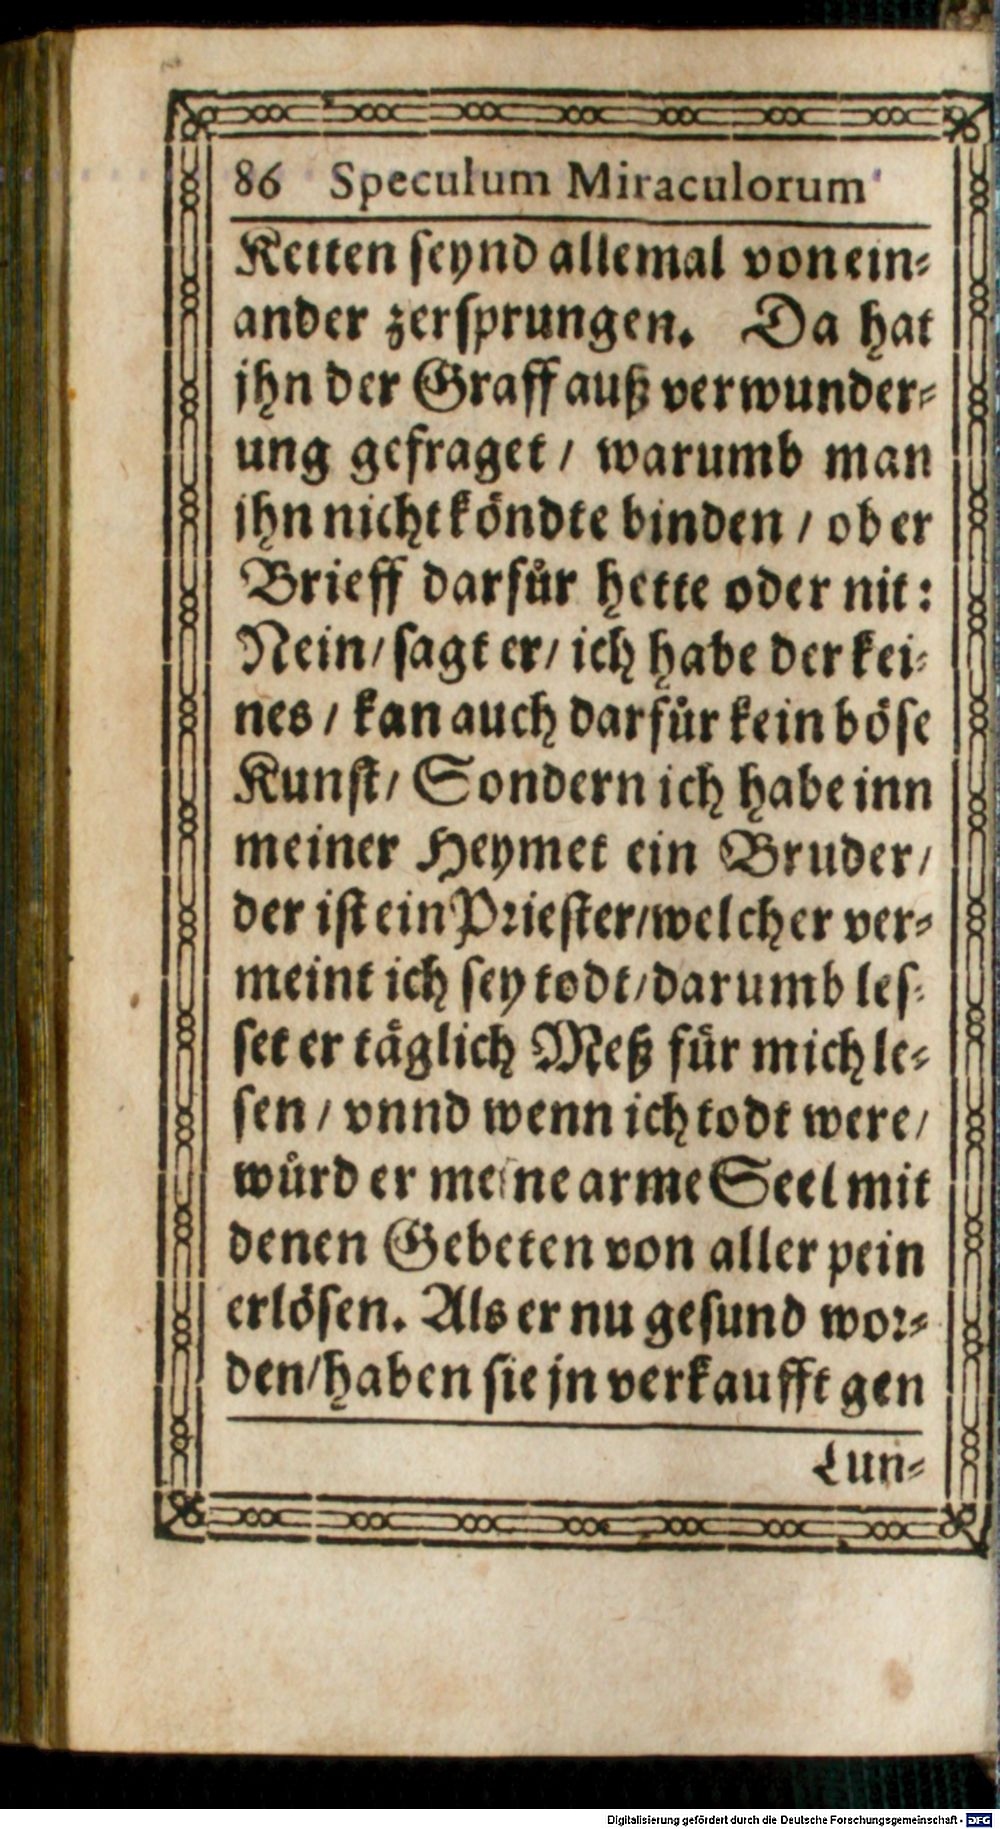 86 Speculum Miraculorum
Ketten seynd allemal von ein⸗
ander zersprungen. Da hat
jhn der Graff auß verwunder⸗
ung gefraget / warumb man
jhn nicht köndte binden / ob er
Brieff darfuͤr hette oder nit:
Nein / sagt er / ich habe der kei⸗
nes / kan auch darfuͤr kein boͤse
Kunst / Sondern ich habe inn
meiner Heymet ein Bruder /
der ist ein Priester / welcher ver⸗
meint ich sey todt / darumb les⸗
set er taͤglich Meß fuͤr mich le⸗
sen / vnnd wenn ich todt were /
wuͤrd er meine arme Seel mit
denen Gebeten von aller pein
erloͤsen. Als er nu gesund wor⸗
den / haben sie jn verkaufft gen
Lun⸗
Digitalisierung gefördert durch die Deutsche Forschungsgemeinschaft - DFG